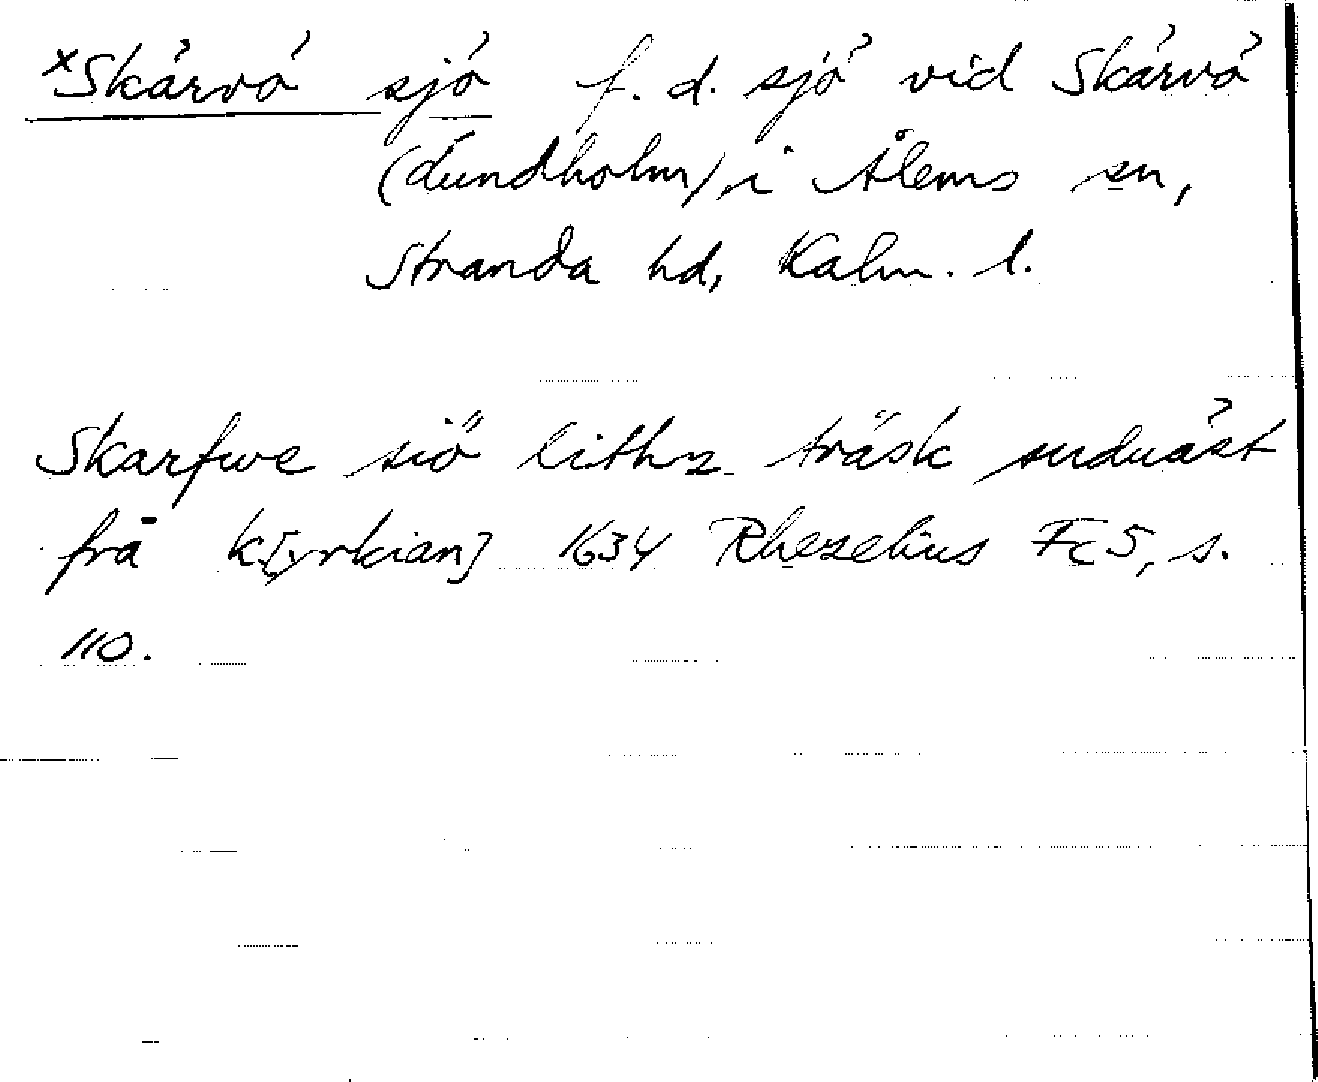 ×Skärvö sjö f. d. sjö vid Skärvö
(Lundholm) i Ålems sn,
Stranda hd, Kalm. l.
Skarfwe siö träsk suduäst
frå k[yrkian] 1634 Rhezelius Fc5, s.
110.